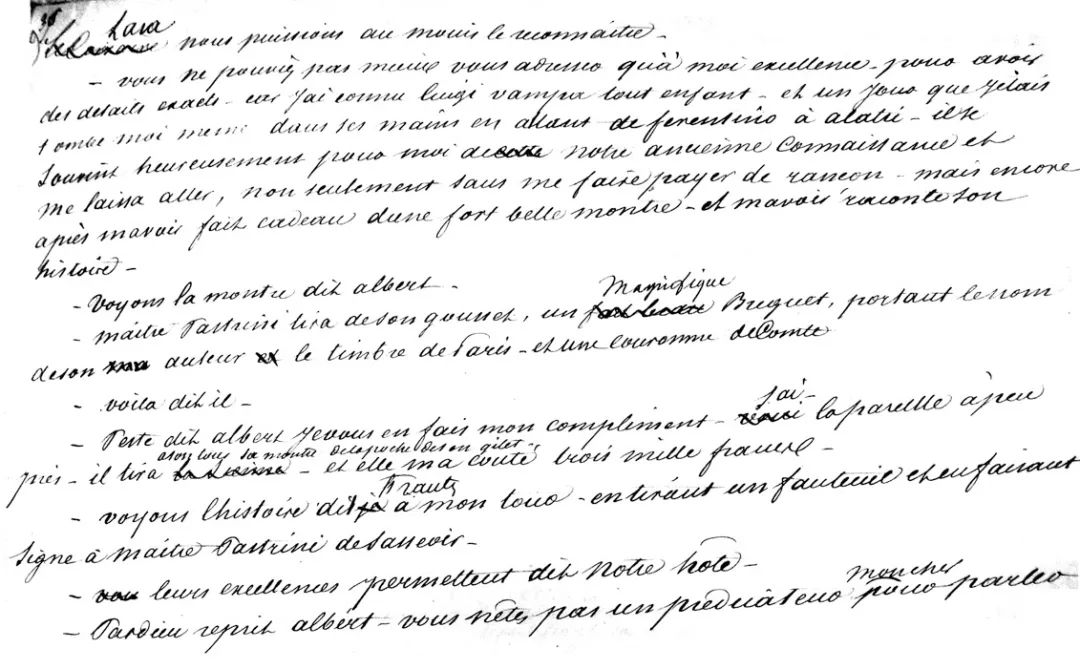 36
Lara
nous puissions au moins le reconnaitre –
– vous ne pouviez pas mieux vous adresser qu'à moi excellence – pour avoir
des details exacts – car j'ai connu luigi vampa tout enfant – et un jour que j'etais
tombé moi meme dans ses mains en allant de ferentino à alatri – il se
souvint heureusement pour moi de notre ancienne connaissance et
me laissa aller, non seulement sans me faire payer de rancon – mais encore
après mavoir fait cadeau dune fort belle montre – et mavoir raconté son
histoire –
– Voyons la montre dit albert –
magnifique
– maitre Pastrini tira de son gousset, un Breguet, portant le nom
de son auteur le timbre de Paris – et une couronne de Comte
– voila dit il –
j'ai –
– Peste dit albert je vous en fais mon compliment – la pareille à peu
sa montre de la poche de son gilet –
près – il tira – et elle ma couté trois mille francs –
Frantz
– voyons lhistoire dit à mon tour – en tirant un fauteuil et en faisant
signe à maitre Pastrini de sasseoir –
– leurs excellences permettent dit notre hôte –
moncher
– Pardieu reprit albert – vous nêtes pas un prédicateur pour parler